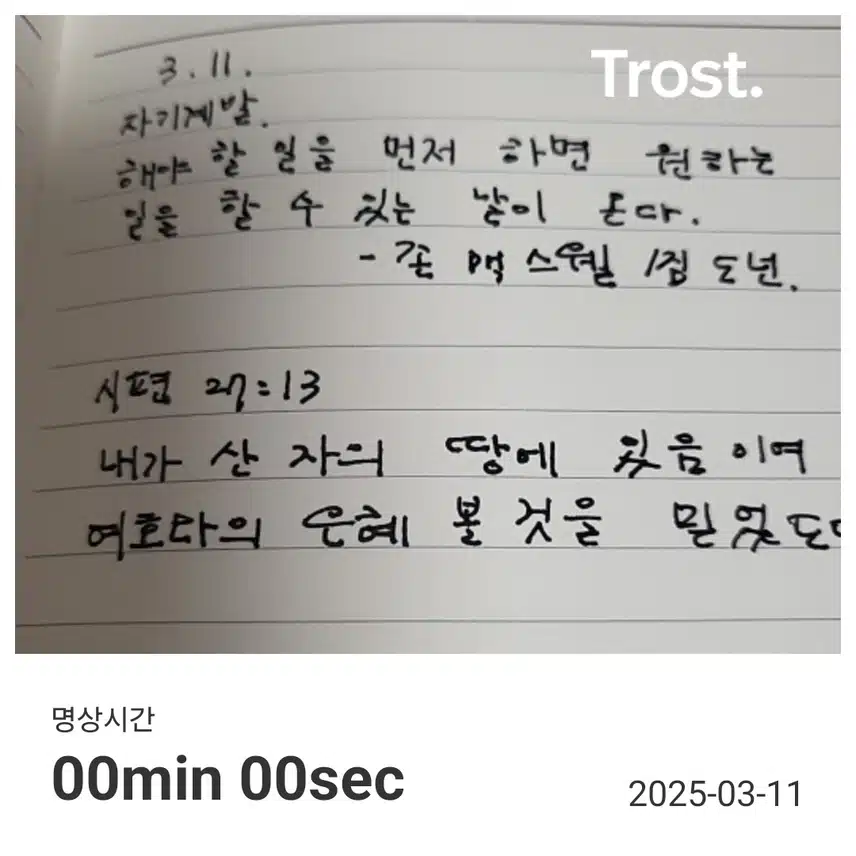 Trost.
3.11.
자기계발.
해야 할 일을 먼저 하면 원하는
일을 할 수 있는 날이 온다.
- 존 맥스웰
시편 27:13
내가 산 자의 땅에 있음이여
여호와의 은혜 볼 것을 믿었도
명상시간
00min 00sec
2025-03-11